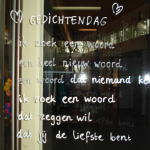 GEDICHTENDAG
ik zoek een woord
een heel nieuw woord
een woord dat niemand ke
ik zoek een woord
dat zeggen wil
dat jij de liefste bent